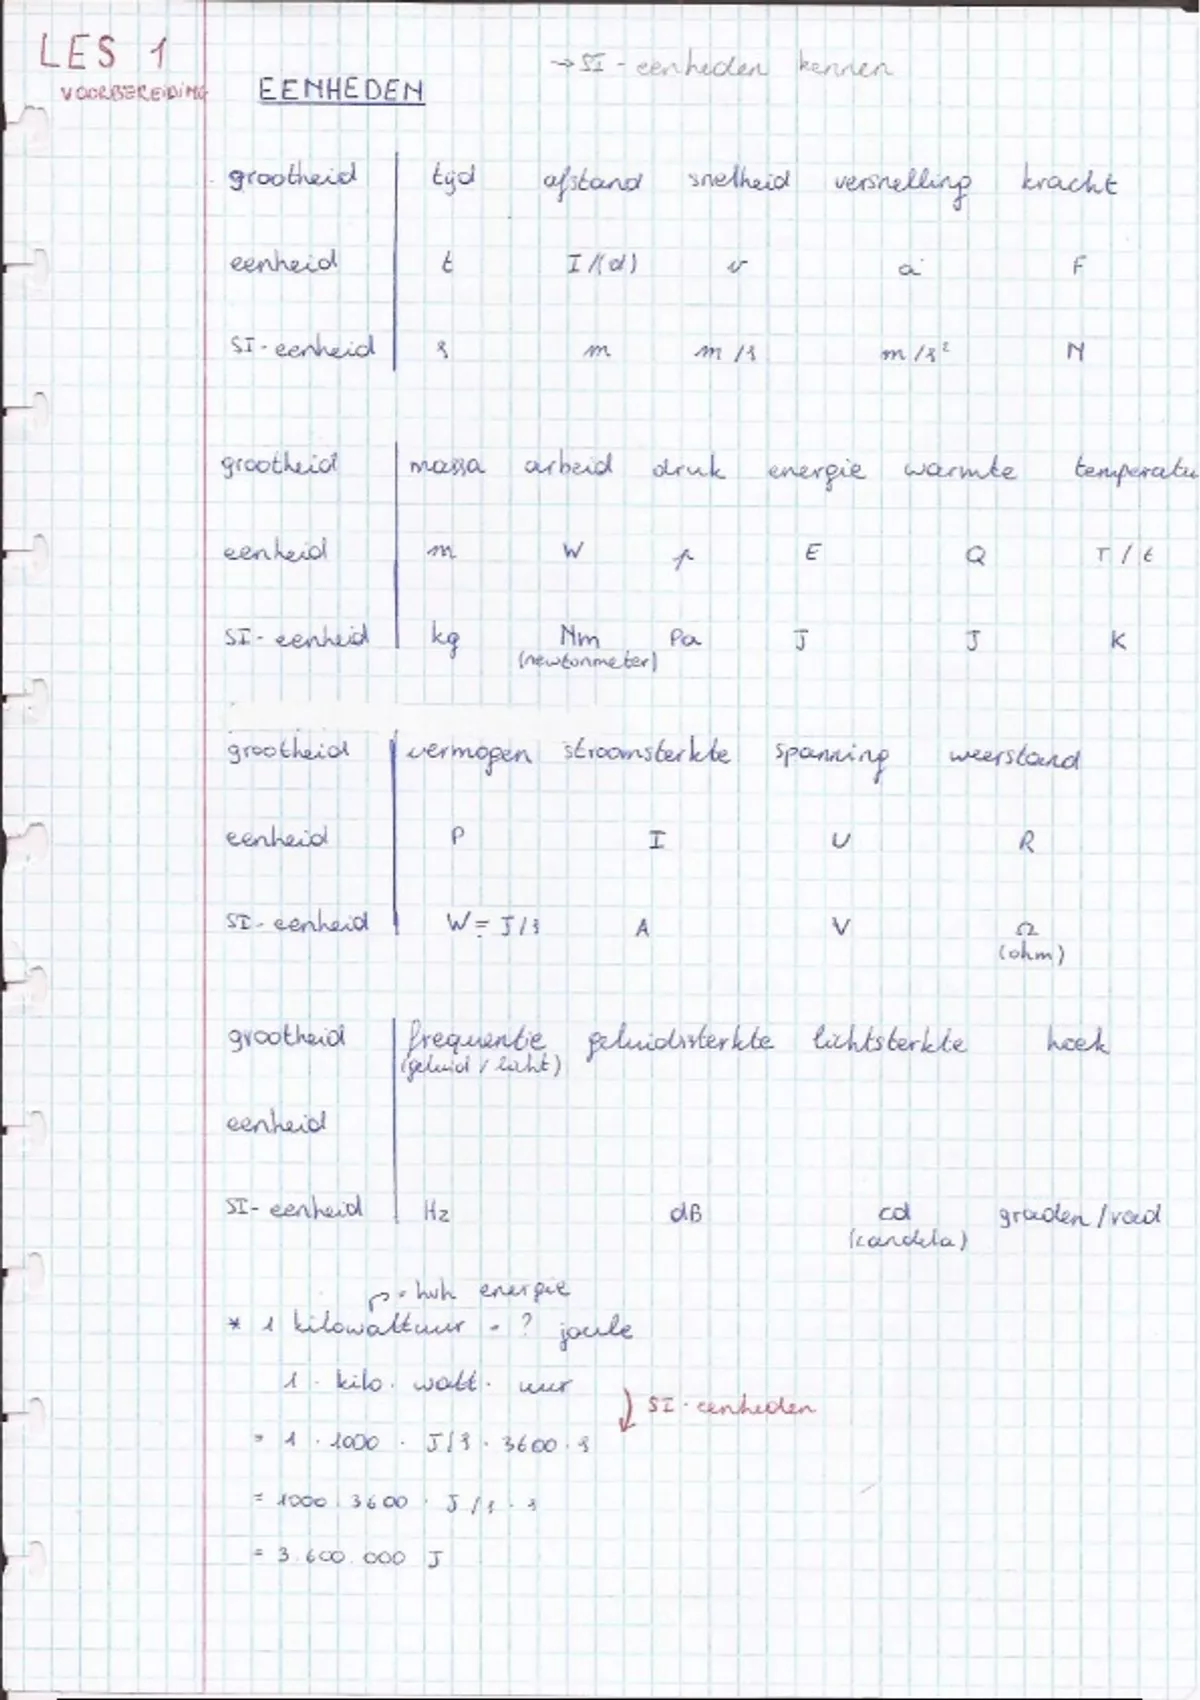 LES 1
VOORBEREIDING
→ SI - eenheden kennen
EENHEDEN
grootheid tijd afstand snelheid versnelling kracht
eenheid t I/(d) v a F
SI-eenheid s m m/s m/s² N
grootheid massa arbeid druk energie warmte temperatu
eenheid m W p E Q T / t
SI-eenheid kg Nm Pa J J K
(newtonmeter)
grootheid vermogen stroomsterkte spanning weerstand
eenheid P I U R
SI-eenheid W = J/s A V Ω
(ohm)
grootheid frequentie geluidssterkte lichtsterkte hoek
(geluid / licht)
eenheid
SI-eenheid Hz dB cd graden / rad
(candela)
energie
* 1 kilowattuur = ? joule
1 . kilo . watt . uur
SI-eenheden
= 1 . 1000 . J/s . 3600 . s
= 1000 . 3600 . J/s . s
= 3.600.000 J